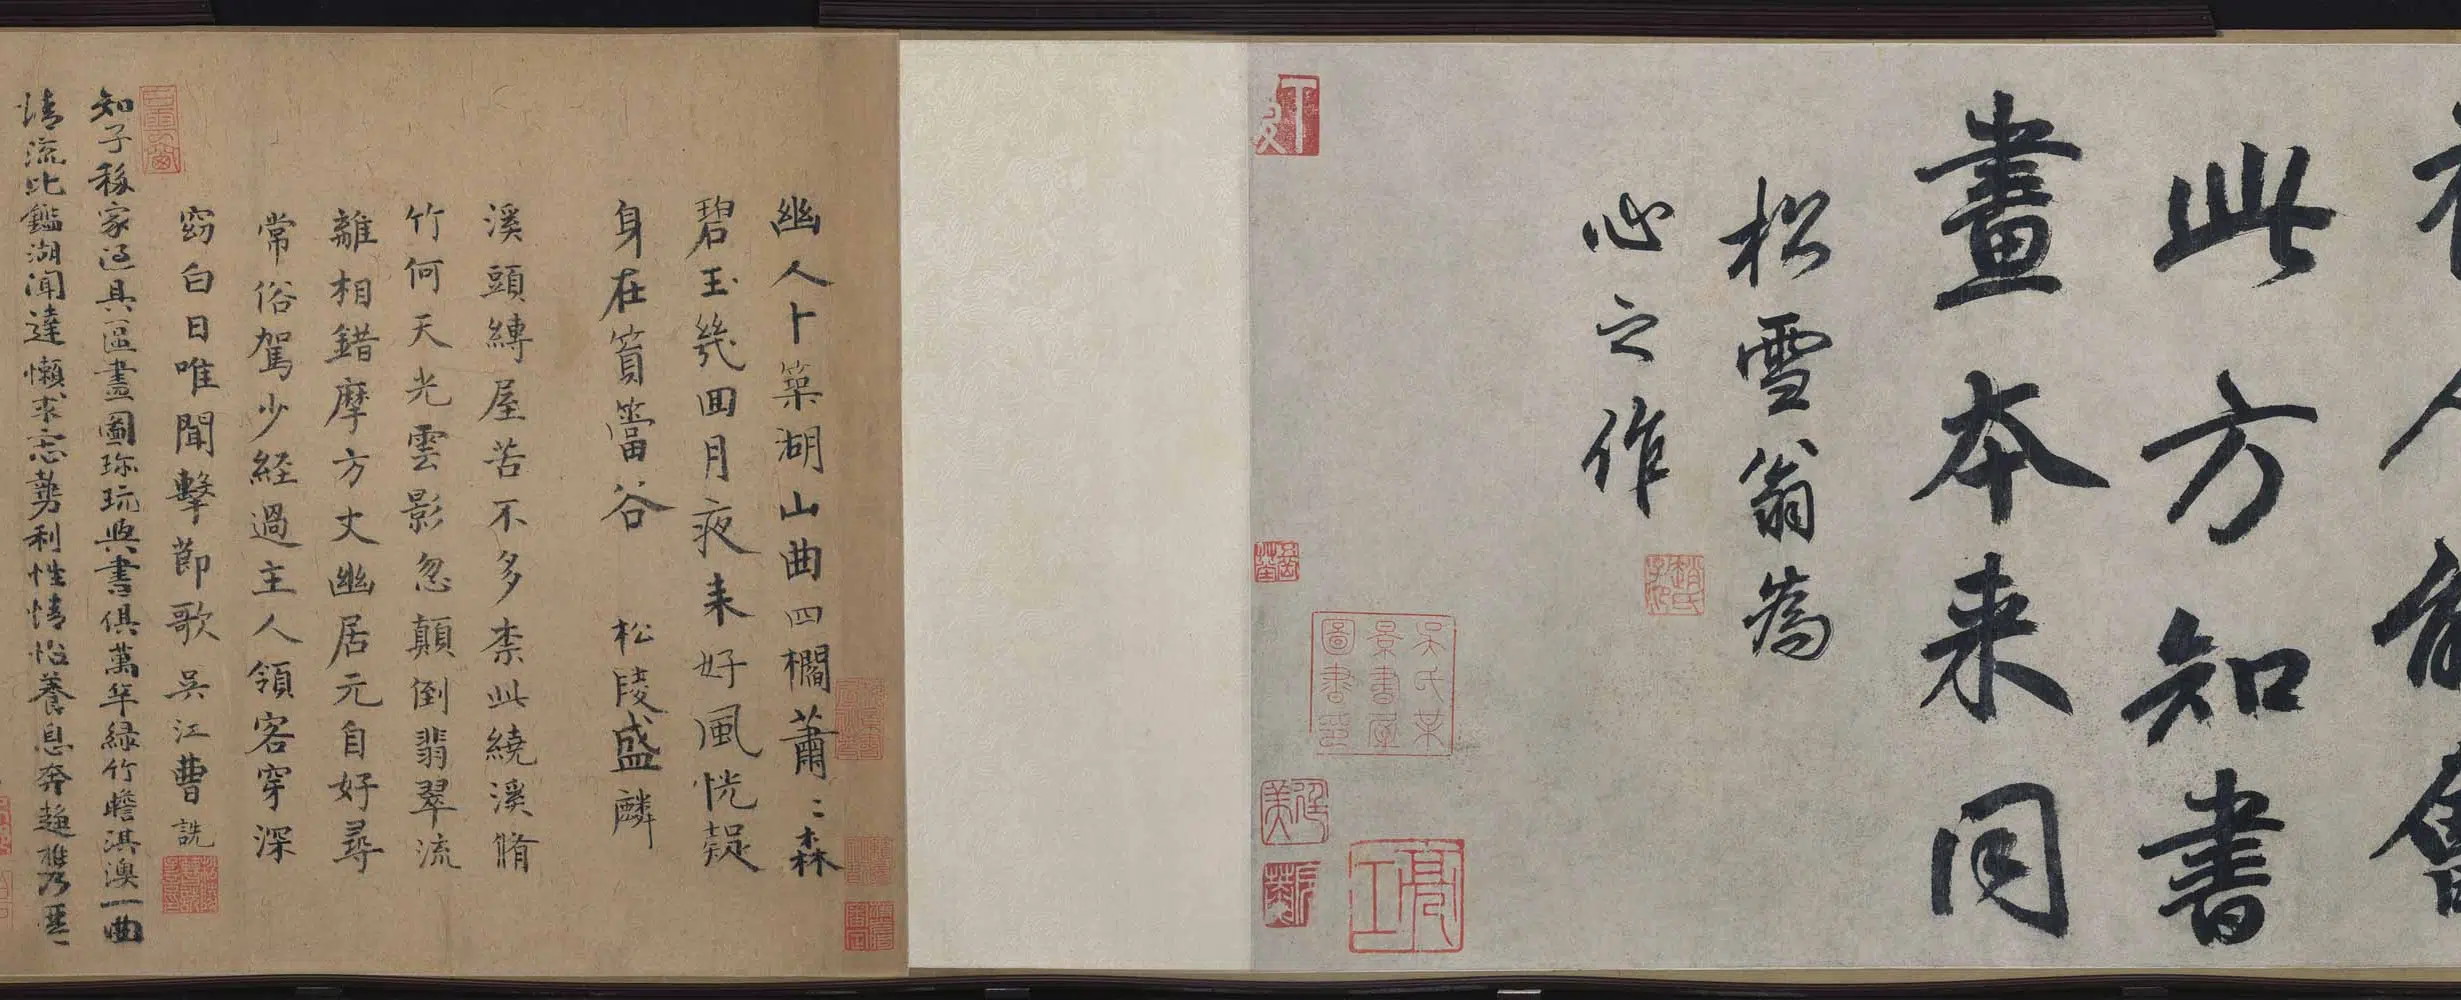 有人能會
此方知書
畫本来同
松雪翁為
心之作
趙氏子昂
幽人卜築湖山曲四櫩蕭〻森
碧玉幾回月夜来好風恍疑
身在篔簹谷 松陵盛麟
溪頭縛屋苦不多柰此繞溪脩
竹何天光雲影忽顛倒翡翠流
離相錯摩方丈幽居元自好尋
常俗駕少経過主人領客穿深
窈白日唯聞擊節歌吳江曹詵
知子移家過具區畫圖珎玩與書俱萬竿緑竹瞻淇澳一曲
清流比鑑湖聞達懶求忘勢利性情怡養息奔趨